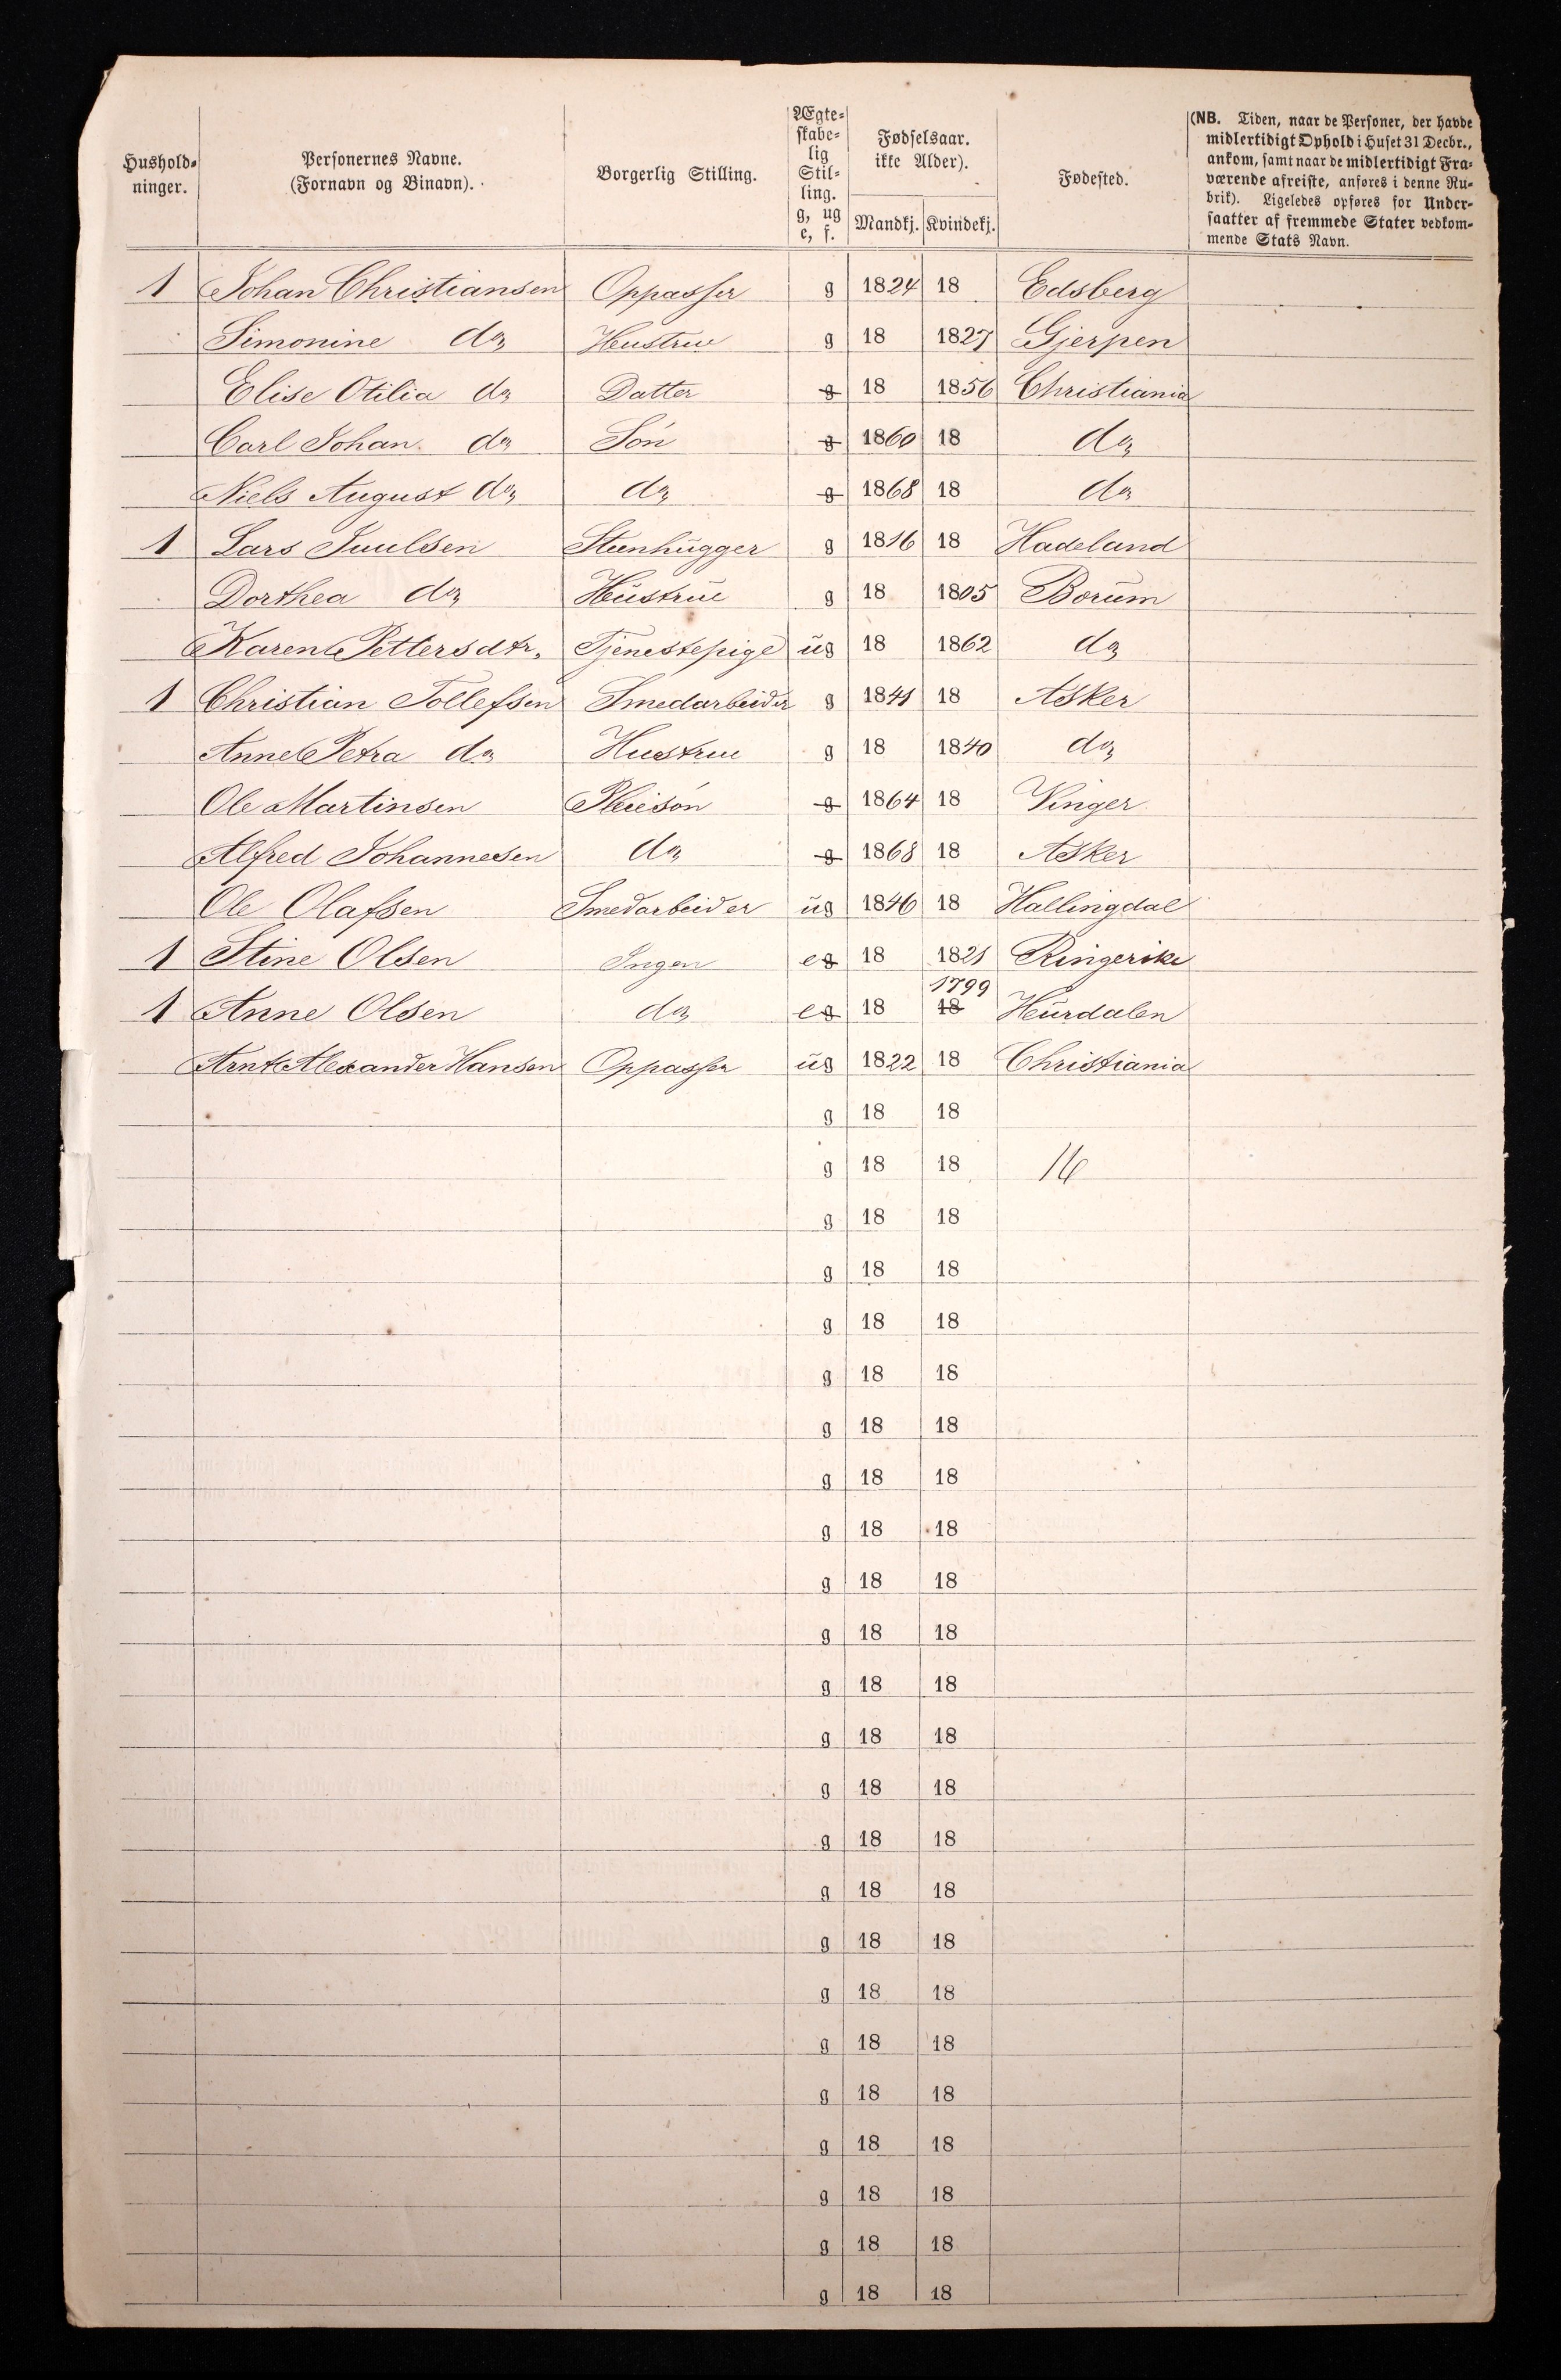 Hushold-
ninger.
Personernes Navne.
(Fornavn og Binavn).
Borgerlig Stilling.
Ægte-
skabe-
lig
Stil-
ling.
g, ug
e, f.
Fødselsaar.
ikke Alder).
Mandkj. Kvindekj.
Fødested.
(NB. Tiden, naar de Personer, der havde
midlertidigt Ophold i Huset 31 Decbr.,
ankom, samt naar de midlertidigt Fra-
værende afreiste, anføres i denne Ru-
brik). Ligeledes opføres for Under-
saatter af fremmede Stater vedkom-
mende Stats Navn.
1 Johan Christiansen Oppasser g 1824 18 Edsberg
Simonine do Hustrue g 18 1827 Gjerpen
Elise Otilia do Datter g 18 1856 Christiania
Carl Johan do Søn g 1860 18 do
Niels August do do g 1868 18 do
1 Lars Juulsen Steenhugger g 1816 18 Hadeland
Dorthea do Hustrue g 18 1805 Borum
Karen Pettersdtr. Tjenestepige ug 18 1862 do
1 Christian Tollefsen Smedarbeider g 1841 18 Asker
Anne Petra do Hustrue g 18 1840 do
Ole Martinsen Pleiesøn g 1864 18 Vinger
Alfred Johannesen do g 1868 18 Asker
Ole Olafsen Smedarbeider ug 1846 18 Hallingdal
1 Stine Olsen Ingen eg 18 1821 Ringerike
1799
1 Anne Olsen do eg 18 18 Hurdalen
Arnt Alexander Hansen Oppasser ug 1822 18 Christiania
g 18 18
g 18 18 16
g 18 18
g 18 18
g 18 18
g 18 18
g 18 18
g 18 18
g 18 18
g 18 18
g 18 18
g 18 18
g 18 18
g 18 18
g 18 18
g 18 18
g 18 18
g 18 18
g 18 18
g 18 18
g 18 18
g 18 18
g 18 18
g 18 18